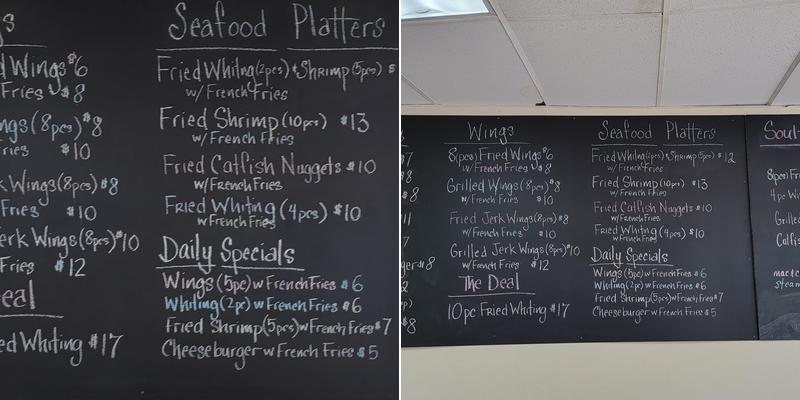 s
Seafood Platters
d Wings $6
Fries $8
Fried Whiting (2pcs) + Shrimp (5pcs) $
w/ French Fries
ngs (8pcs) $8
ries $10
Fried Shrimp (10pcs) $13
w/ French Fries
k Wings (8pcs) $8
Fries $10
Fried Catfish Nuggets $10
w/ French Fries
erk Wings (8pcs) $10
Fries $12
Fried Whiting (4pcs) $10
w French Fries
Daily Specials
Wings (5pc) w French Fries $6
Whiting (2pc) w French Fries $6
Fried Shrimp (5pcs) w French Fries $7
Cheeseburger w French Fries $5
eal
ed Whiting $17
Wings
8(pcs) Fried Wings $6
w/ French Fries $8
Grilled Wings (8pcs) $8
w/ French Fries $10
Fried Jerk Wings (8pcs) $8
w/ French Fries $10
Grilled Jerk Wings (8pcs) $10
w/ French Fries $12
The Deal
10pc Fried Whiting $17
Seafood Platters
Fried Whiting (2pcs) + Shrimp (5pcs) $12
w/ French Fries
Fried Shrimp (10pcs) $13
w/ French Fries
Fried Catfish Nuggets $10
w/ French Fries
Fried Whiting (4pc) $10
w French Fries
Daily Specials
Wings (5pc) w French Fries $6
Whiting (2pc) w French Fries $6
Fried Shrimp (5pcs) w French Fries $7
Cheeseburger w French Fries $5
Soul
8(pcs) Fri
4 pc W
Grille
Catfis
mac &
steam
ger $8
$8